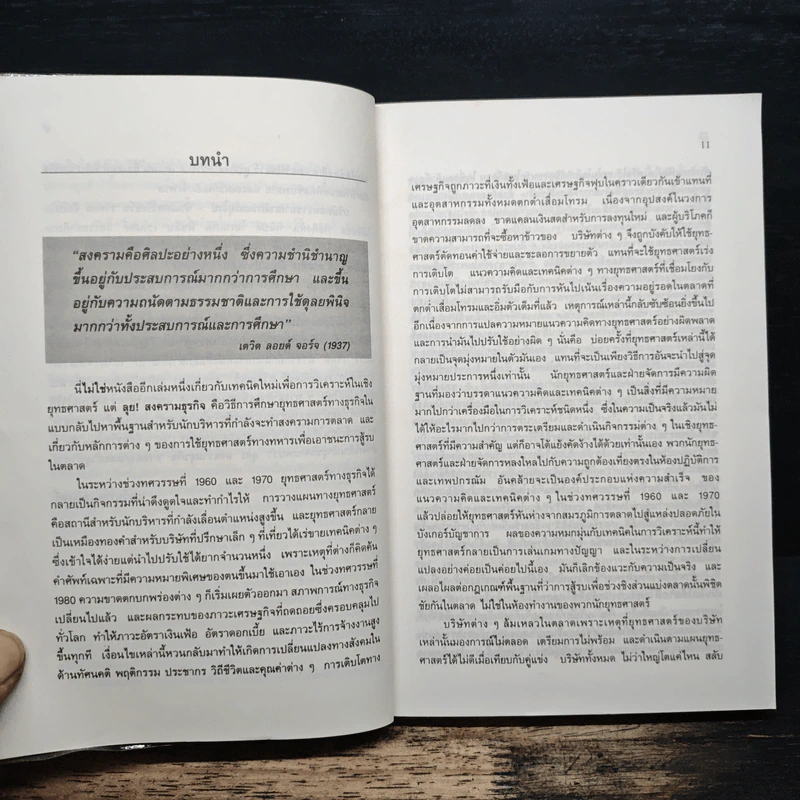 บทนำ
“สงครามคือศิลปะอย่างหนึ่ง ซึ่งความชำนิชำนาญ
ขึ้นอยู่กับประสบการณ์มากกว่าการศึกษา และขึ้น
อยู่กับความถนัดตามธรรมชาติและการใช้ดุลยพินิจ
มากกว่าทั้งประสบการณ์และการศึกษา”
เดวิด ลอยด์ จอร์จ (1937)
นี่ไม่ใช่หนังสืออีกเล่มหนึ่งเกี่ยวกับเทคนิคใหม่เพื่อการวิเคราะห์ในเชิง
ยุทธศาสตร์ แต่ ลุย! สงครามธุรกิจ คือวิธีการศึกษายุทธศาสตร์ทางธุรกิจใน
แบบกลับไปหาพื้นฐานสำหรับนักบริหารที่กำลังจะทำสงครามการตลาด และ
เกี่ยวกับหลักการต่าง ๆ ของการใช้ยุทธศาสตร์ทางทหารเพื่อเอาชนะการสู้รบ
ในตลาด
ในระหว่างช่วงทศวรรษที่ 1960 และ 1970 ยุทธศาสตร์ทางธุรกิจได้
กลายเป็นกิจกรรมที่น่าดึงดูดใจและทำกำไรให้ การวางแผนทางยุทธศาสตร์
คือสถานีสำหรับนักบริหารที่กำลังเลื่อนตำแหน่งสูงขึ้น และยุทธศาสตร์กลาย
เป็นเหมืองทองคำสำหรับบริษัทที่ปรึกษาเล็ก ๆ ที่เที่ยวได้เร่ขายเทคนิคต่าง ๆ
ซึ่งเข้าใจได้ง่ายแต่นำไปปรับใช้ได้ยากจำนวนหนึ่ง เพราะเหตุที่ต่างก็คิดค้น
คำศัพท์เฉพาะที่มีความหมายพิเศษของตนขึ้นมาใช้เอาเอง ในช่วงทศวรรษที่
1980 ความขาดตกบกพร่องต่าง ๆ ก็เริ่มเผยตัวออกมา สภาพการณ์ทางธุรกิจ
เปลี่ยนแปลงไปแล้ว และผลกระทบของภาวะเศรษฐกิจที่ถดถอยซึ่งครอบคลุมไป
ทั่วโลก ทำให้ภาวะอัตราเงินเฟ้อ อัตราดอกเบี้ย และภาวะไร้การจ้างงานสูง
ขึ้นทุกที เงื่อนไขเหล่านี้หวนกลับมาทำให้เกิดการเปลี่ยนแปลงทางสังคมใน
ด้านทัศนคติ พฤติกรรม ประชากร วิถีชีวิตและคุณค่าต่าง ๆ การเติบโตทาง
11
เศรษฐกิจถูกภาวะที่เงินทั้งเฟ้อและเศรษฐกิจฟุบในคราวเดียวกันเข้าแทนที่
และอุตสาหกรรมทั้งหมดตกต่ำเสื่อมโทรม เนื่องจากอุปสงค์ในวงการ
อุตสาหกรรมลดลง ขาดแคลนเงินสดสำหรับการลงทุนใหม่ และผู้บริโภคก็
ขาดความสามารถที่จะซื้อหาข้าวของ บริษัทต่าง ๆ จึงถูกบังคับให้ใช้ยุทธ-
ศาสตร์ตัดทอนค่าใช้จ่ายและชะลอการขยายตัว แทนที่จะใช้ยุทธศาสตร์เร่ง
การเติบโต แนวความคิดและเทคนิคต่าง ๆ ทางยุทธศาสตร์ที่เชื่อมโยงกับ
การเติบโตไม่สามารถรับมือกับการหันไปเน้นเรื่องความอยู่รอดในตลาดที่
ตกต่ำเสื่อมโทรมและอิ่มตัวเต็มที่แล้ว เหตุการณ์เหล่านี้กลับซับซ้อนยิ่งขึ้นไป
อีกเนื่องจากการแปลความหมายแนวความคิดทางยุทธศาสตร์อย่างผิดพลาด
และการนำมันไปปรับใช้อย่างผิด ๆ นั่นคือ บ่อยครั้งที่ยุทธศาสตร์เหล่านี้ได้
กลายเป็นจุดมุ่งหมายในตัวมันเอง แทนที่จะเป็นเพียงวิธีการอันจะนำไปสู่จุด
มุ่งหมายประการหนึ่งเท่านั้น นักยุทธศาสตร์และฝ่ายจัดการมีความผิด
ฐานที่มองว่าบรรดาแนวความคิดและเทคนิคต่าง ๆ เป็นสิ่งที่มีความหมาย
มากไปกว่าเครื่องมือในการวิเคราะห์ชนิดหนึ่ง ซึ่งในความเป็นจริงแล้วมันไม่
ได้ให้อะไรมากไปกว่าการตระเตรียมและดำเนินกิจกรรมต่าง ๆ ในเชิงยุทธ-
ศาสตร์ที่มีความสำคัญ แต่ก็อาจโต้แย้งคัดง้างได้ด้วยเท่านั้นเอง พวกนักยุทธ-
ศาสตร์และฝ่ายจัดการหลงใหลไปกับความถูกต้องเที่ยงตรงในห้องปฏิบัติการ
และเทพปกรณัม อันคล้ายจะเป็นองค์ประกอบแห่งความสำเร็จ ของ
แนวความคิดและเทคนิคต่าง ๆ ในช่วงทศวรรษที่ 1960 และ 1970
แล้วปล่อยให้ยุทธศาสตร์หันห่างจากสมรภูมิการตลาดไปสู่แหล่งปลอดภัยใน
บังเกอร์บัญชาการ ผลของความหมกมุ่นกับเทคนิคในการวิเคราะห์นี้ทำให้
ยุทธศาสตร์กลายเป็นการเล่นเกมทางปัญญา และในระหว่างการเปลี่ยน
แปลงอย่างค่อยเป็นค่อยไปนี้เอง มันก็เลิกข้องแวะกับความเป็นจริง และ
เผลอไผลต่อกฎเกณฑ์พื้นฐานที่ว่าการสู้รบเพื่อช่วงชิงส่วนแบ่งตลาดนั้นพิชิต
ชัยกันในตลาด ไม่ใช่ในห้องทำงานของพวกนักยุทธศาสตร์
บริษัทต่าง ๆ ล้มเหลวในตลาดเพราะเหตุที่ยุทธศาสตร์ของบริษัท
เหล่านั้นมองการณ์ไม่ตลอด เตรียมการไม่พร้อม และดำเนินตามแผนยุทธ-
ศาสตร์ได้ไม่ดีเมื่อเทียบกับคู่แข่ง บริษัททั้งหมด ไม่ว่าใหญ่โตแค่ไหน สลับ